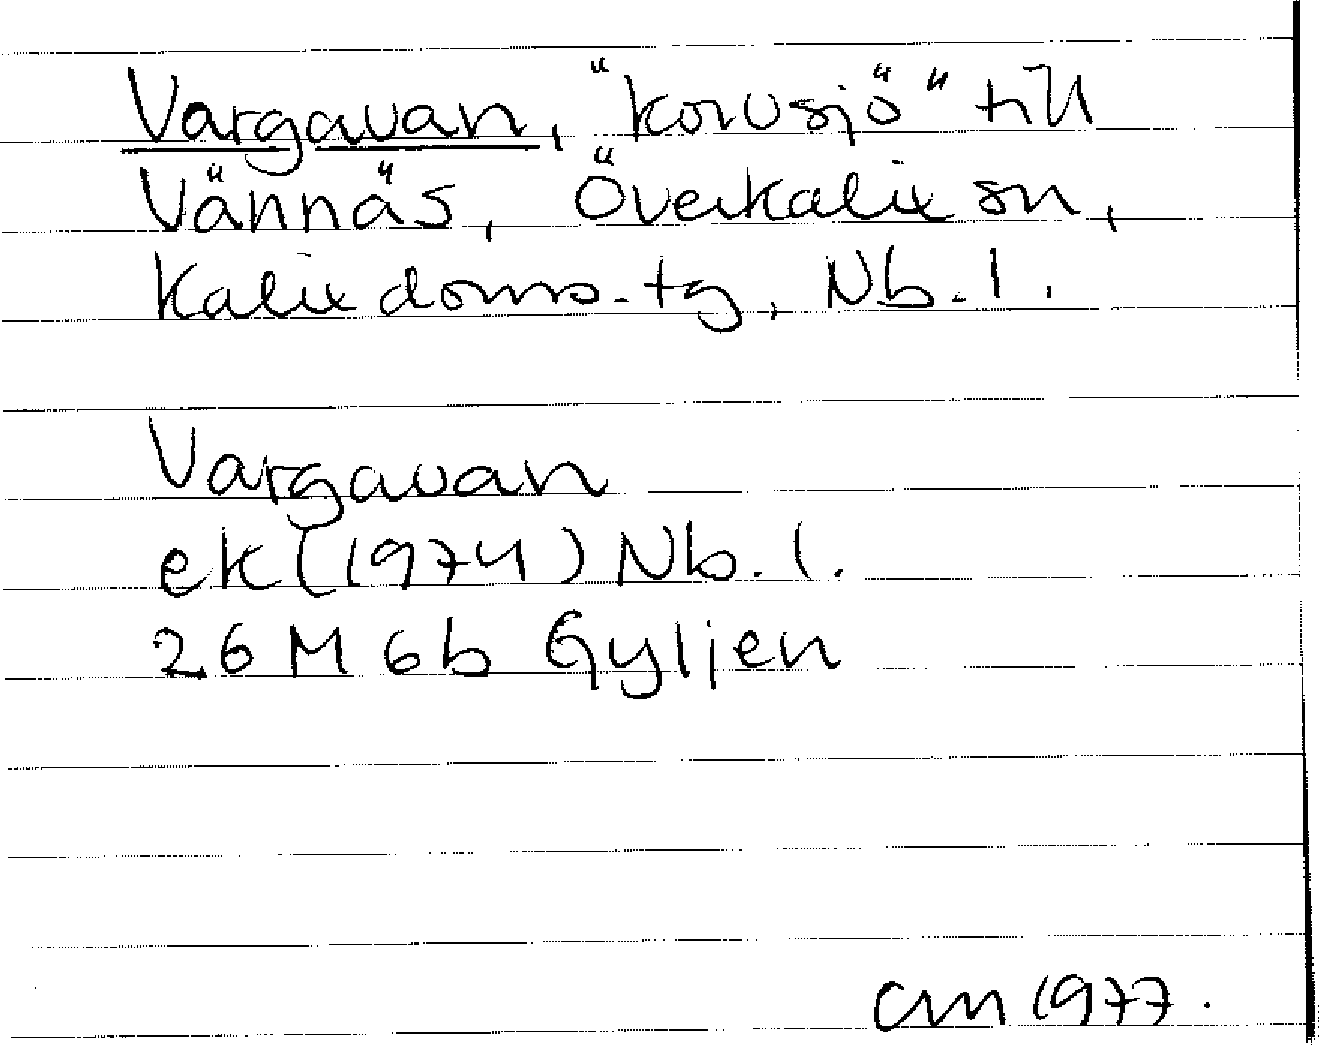 Vargavan, "korvsjö" till
Vännäs, Överkalix sn,
Kalix doms.tg, Nb.l.
Vargavan
ek (1974) Nb.l.
26 M 6b Gyljen
cm 1977.